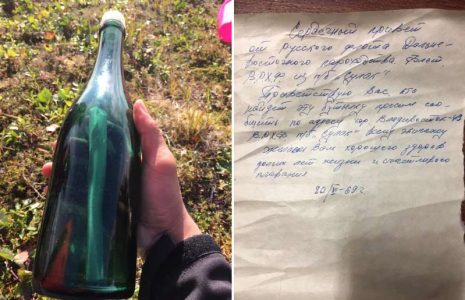 Сердечный привет
от русского флота Дальне-
восточного пароходства
ВРХФ из п/б "Сулак"
Приветствую Вас, кто
найдет эту бутылку просим соо-
бщить по адресу гор Владивосток-43
ВРХФ п/б Сулак всему экипажу
Желаем Вам хорошего здоровья
долгих лет жизни и счастливого
плавания
20/VI-69г.